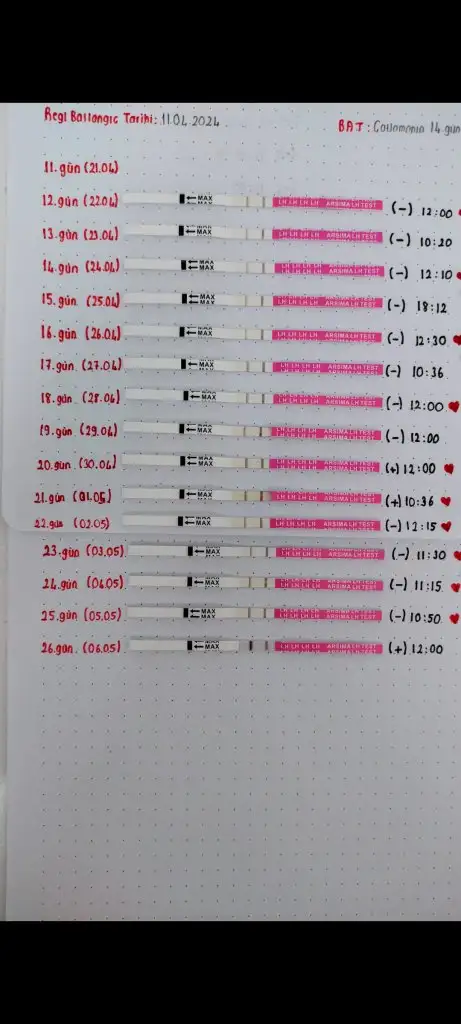 Regl Başlangıç Tarihi: 11.04.2024
BAT: Collomania 14.gün
11.gün (21.04)
12.gün (22.04) MAX MAX LH LH LH LH ARSIMA LH TEST (-) 12:00
13.gün (23.04) MAX MAX LH LH LH LH ARSIMA LH TEST (-) 10:20
14.gün (24.04) MAX MAX LH LH LH LH ARSIMA LH TEST (-) 12:10
15.gün (25.04) MAX MAX LH LH LH LH ARSIMA LH TEST (-) 18:12
16.gün (26.04) MAX MAX LH LH LH LH ARSIMA LH TEST (-) 12:30
17.gün (27.04) MAX MAX LH LH LH LH ARSIMA LH TEST (-) 10:36
18.gün (28.04) MAX MAX LH LH LH LH ARSIMA LH TEST (-) 12:00
19.gün (29.04) MAX MAX LH LH LH LH ARSIMA LH TEST (-) 12:00
20.gün (30.04) MAX MAX LH LH LH LH ARSIMA LH TEST (+) 12:00
21.gün (01.05) MAX MAX LH LH LH LH ARSIMA LH TEST (+) 10:36
22.gün (02.05) MAX LH LH LH LH ARSIMA LH TEST (-) 12:15
23.gün (03.05) MAX MAX LH LH LH LH ARSIMA LH TEST (-) 11:30
24.gün (04.05) MAX MAX LH LH LH LH ARSIMA LH TEST (-) 11:15
25.gün (05.05) MAX MAX LH LH LH LH ARSIMA LH TEST (-) 10:50
26.gün (06.05) MAX MAX LH LH LH LH ARSIMA LH TEST (+) 12:00